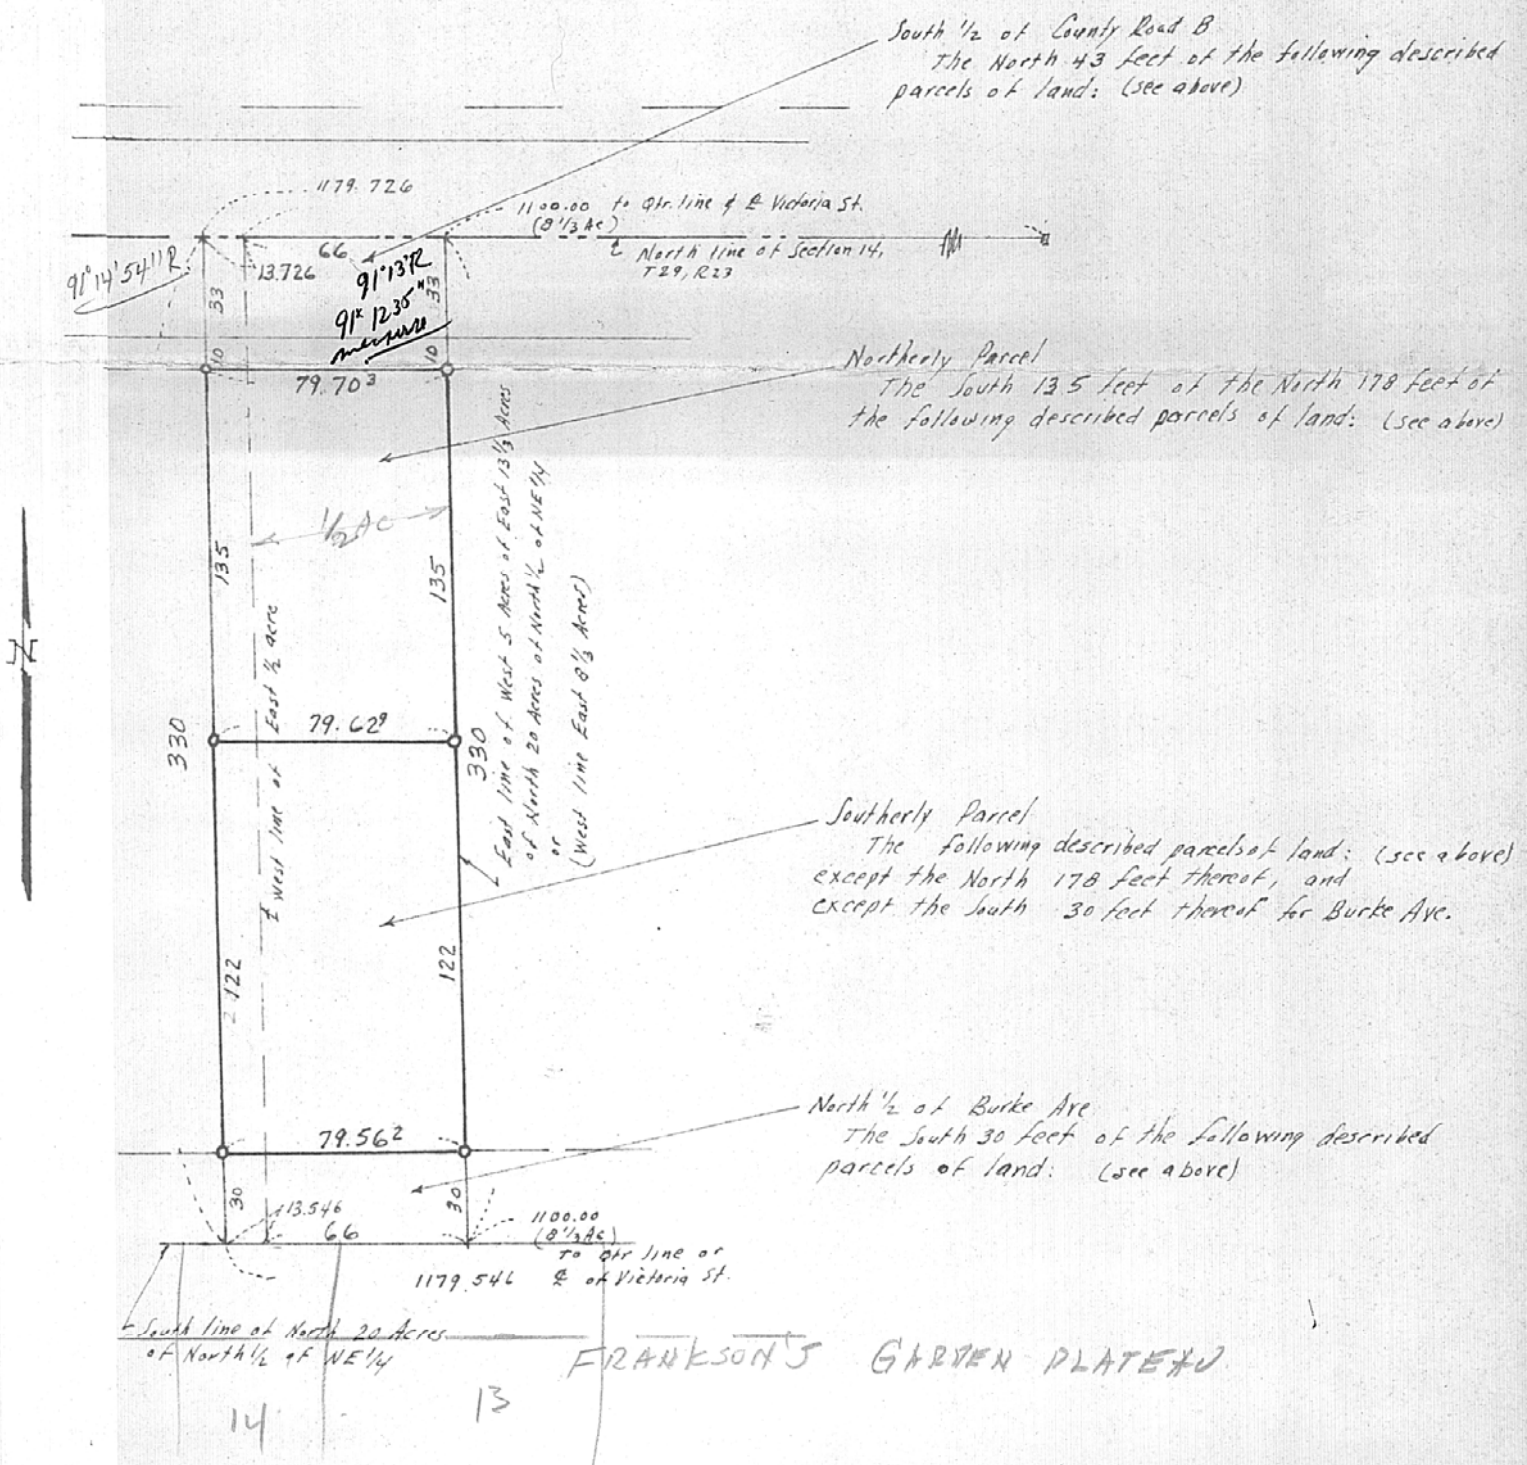 South 1/2 of County Road B
The North 43 feet of the following described
parcels of land: (see above)
1179.726
1100.00 to Qtr. line & ℄ Victoria St.
(8 1/3 Ac)
66
North line of Section 14,
T29, R23
91°14'54" R
13.726
91°13'R
91° 12 35"
measure
33
33
10
10
79.70³
Northerly Parcel
The South 135 feet of the North 178 feet of
the following described parcels of land: (see above)
1/2 Ac
135
135
West line of East 1/2 acre
East line of West 5 Acres of East 13 1/3 Acres
of North 20 Acres of North 1/2 of NE 1/4
or
(West line East 8 1/3 Acres)
N
79.62⁹
330
330
Southerly Parcel
The following described parcels of land: (see above)
except the North 178 feet thereof, and
except the South 30 feet thereof for Burke Ave.
122
122
79.56²
North 1/2 of Burke Ave
The South 30 feet of the following described
parcels of land: (see above)
30
30
13.546
66
1100.00
(8 1/3 Ac)
To Qtr line or
℄ of Victoria St.
1179.546
South line of North 20 Acres
of North 1/2 of NE 1/4
FRANKSON'S GARDEN PLATEAU
14
13